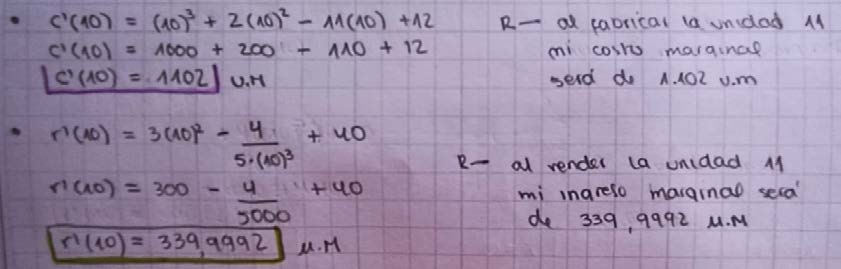 • C'(10) = (10)³ + 2(10)² - 11(10) + 12
C'(10) = 1000 + 200 - 110 + 12
C'(10) = 1102 U.M
R— al fabricar la unidad 11
mi costo marginal
será de 1.102 u.m
• r'(10) = 3(10)² - 4/5·(10)³ + 40
r'(10) = 300 - 4/5000 + 40
r'(10) = 339,9992 u.M
R— al vender la unidad 11
mi ingreso marginal será
de 339,9992 u.M